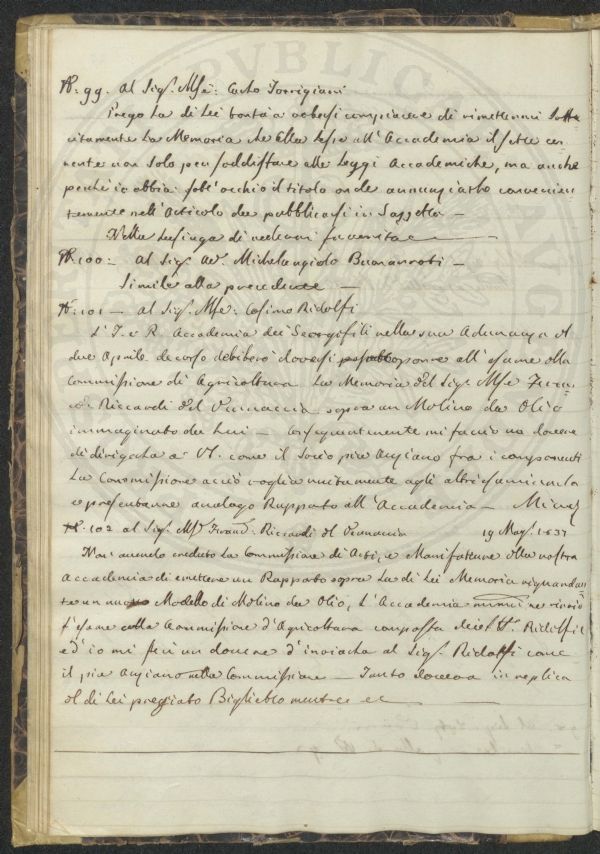 N°. 99. Al Sig.r Mse: Carlo Torrigiani
Prego la di Lei bontà a volersi compiacere di rimettermi solle
citamente la Memoria che Ella lesse all'Accademia il sette cor
rente non solo per soddisfare alle Leggi Accademiche, ma anche
perché io abbia sott'occhio il titolo onde annunziarlo convenien
temente nell'Articolo da pubblicarsi in Gazzetta —
Nella lusinga di vedermi favorito
N°. 100 – Al Sig.r Michelangiolo Buonarroti –
Simile alla precedente —
N°. 101 – al Sig.r Mse: Cosimo Ridolfi
L'I. e R. Accademia dei Georgofili nella sua Adunanza del
due Aprile decorso deliberò doversi esporre all'esame della
Commissione di Agricoltura la Memoria del Sig.r Mse
Riccardi del Vernaccia sopra un Molino da Olio
immaginato da Lui — Conseguentemente mi faccio un dovere
di dirigerla a VS. come il Socio più Anziano fra i componenti
la Commissione acciò voglia unitamente agli altri esaminarla
e presentarne analogo Rapporto all'Accademia —
N°. 102 al Sig.r Mse Riccardi del Vernaccia 19 Mag. 1837
Non avendo creduto la Commissione di Arti, e Manifatture della nostra
Accademia di emettere un Rapporto sopra la di Lei Memoria riguardan
te un nuovo Modello di Molino da Olio, l'Accademia ne rinviò
l'esame alla Commissione d'Agricoltura Ridolfi
ed io mi feci un dovere d'inviarla al Sig.r Ridolfi come
il più Anziano nella Commissione — Tanto doveva in replica
al di Lei pregiato Biglietto mentre ec
PUBLIC